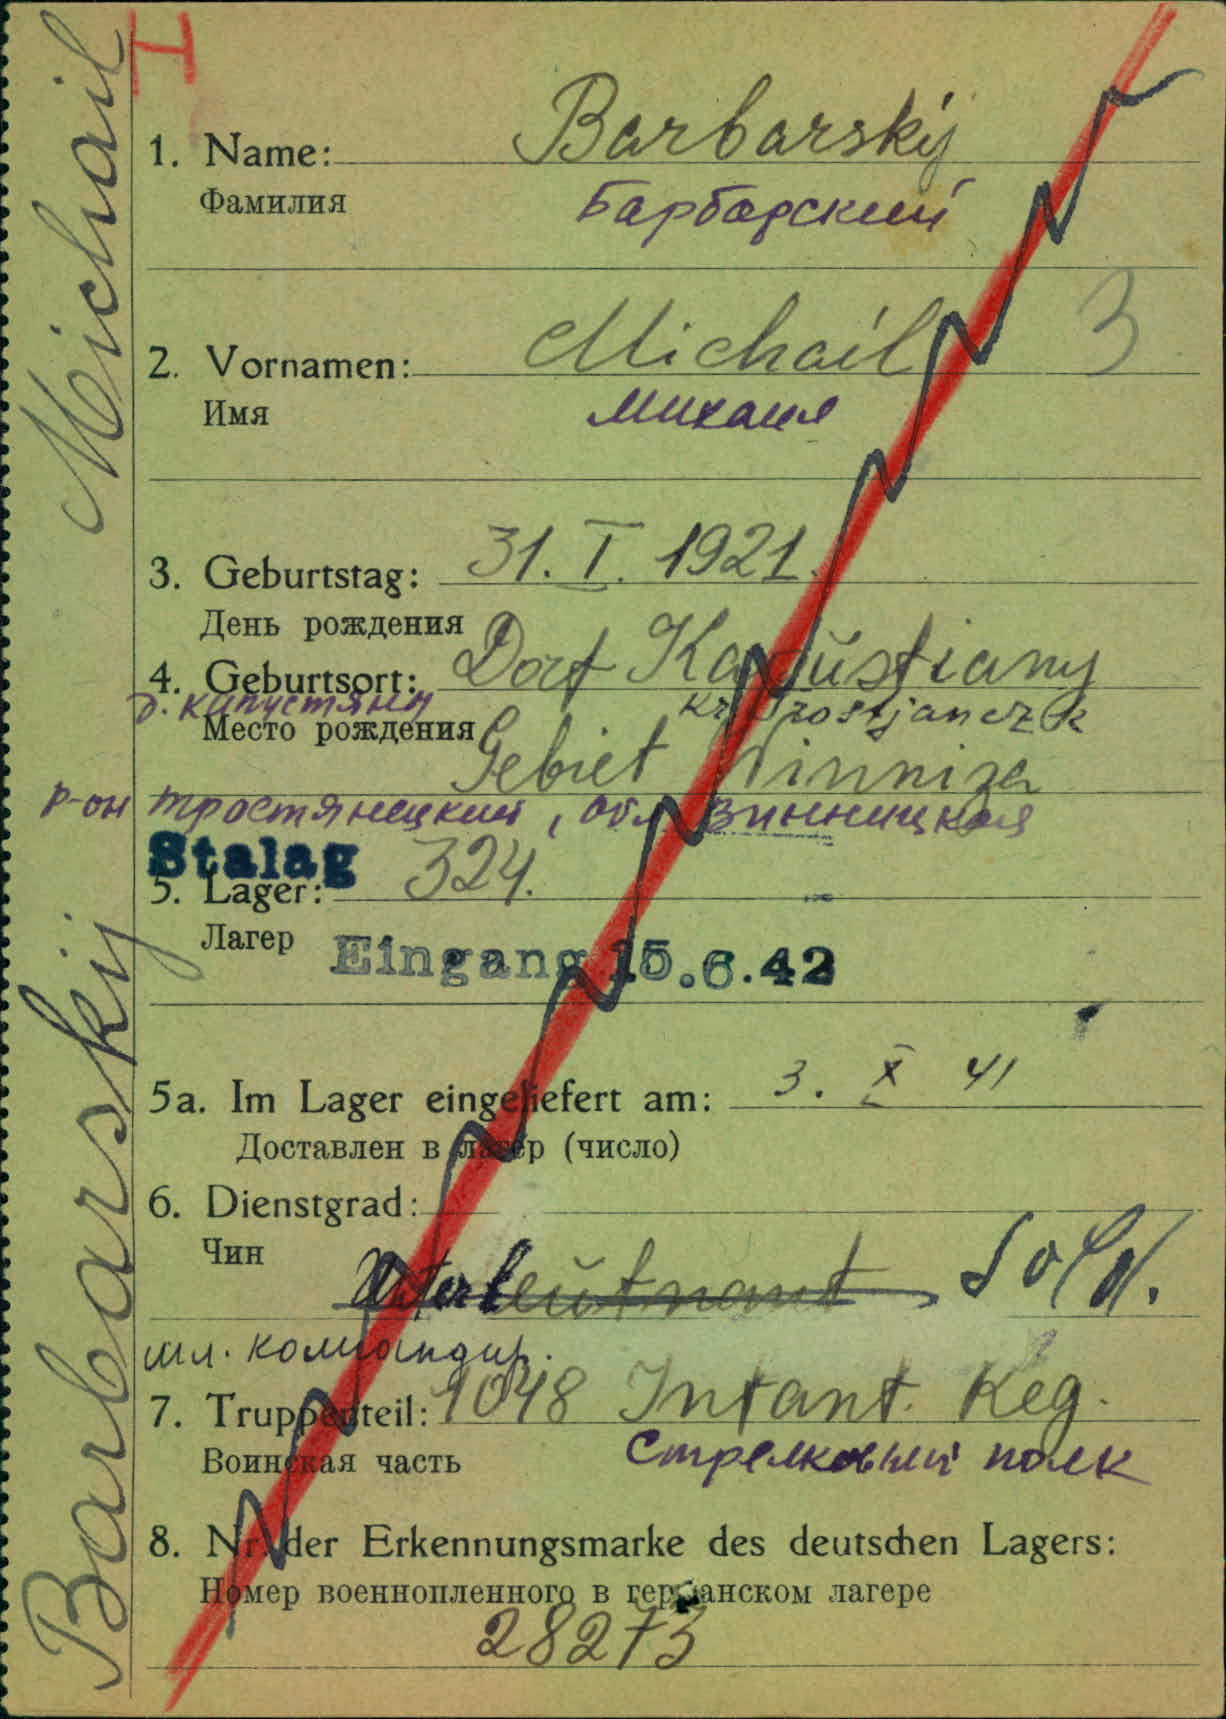 I
Michail
Barbarskij
1. Name: Barbarskij
Фамилия Барбарский
3
2. Vornamen: Michail
Имя Михаил
3. Geburtstag: 31. I. 1921.
День рождения
4. Geburtsort: Dorf Kapustiany
д. Капустяны Kr. Trostjanezk
Место рождения
Gebiet Winniza
р-он Тростянецкий, обл Винницкая
Stalag
5. Lager: 324.
Лагер Eingang 15.6.42
5a. Im Lager eingeliefert am: 3. X 41
Доставлен в лагер (число)
6. Dienstgrad:
Чин
Unterleutnant Sold.
мл. командир.
7. Truppenteil: 1048 Infant. Reg.
Воинская часть Стрелковый полк
8. Nr. der Erkennungsmarke des deutschen Lagers:
Номер военнопленного в германском лагере
28273